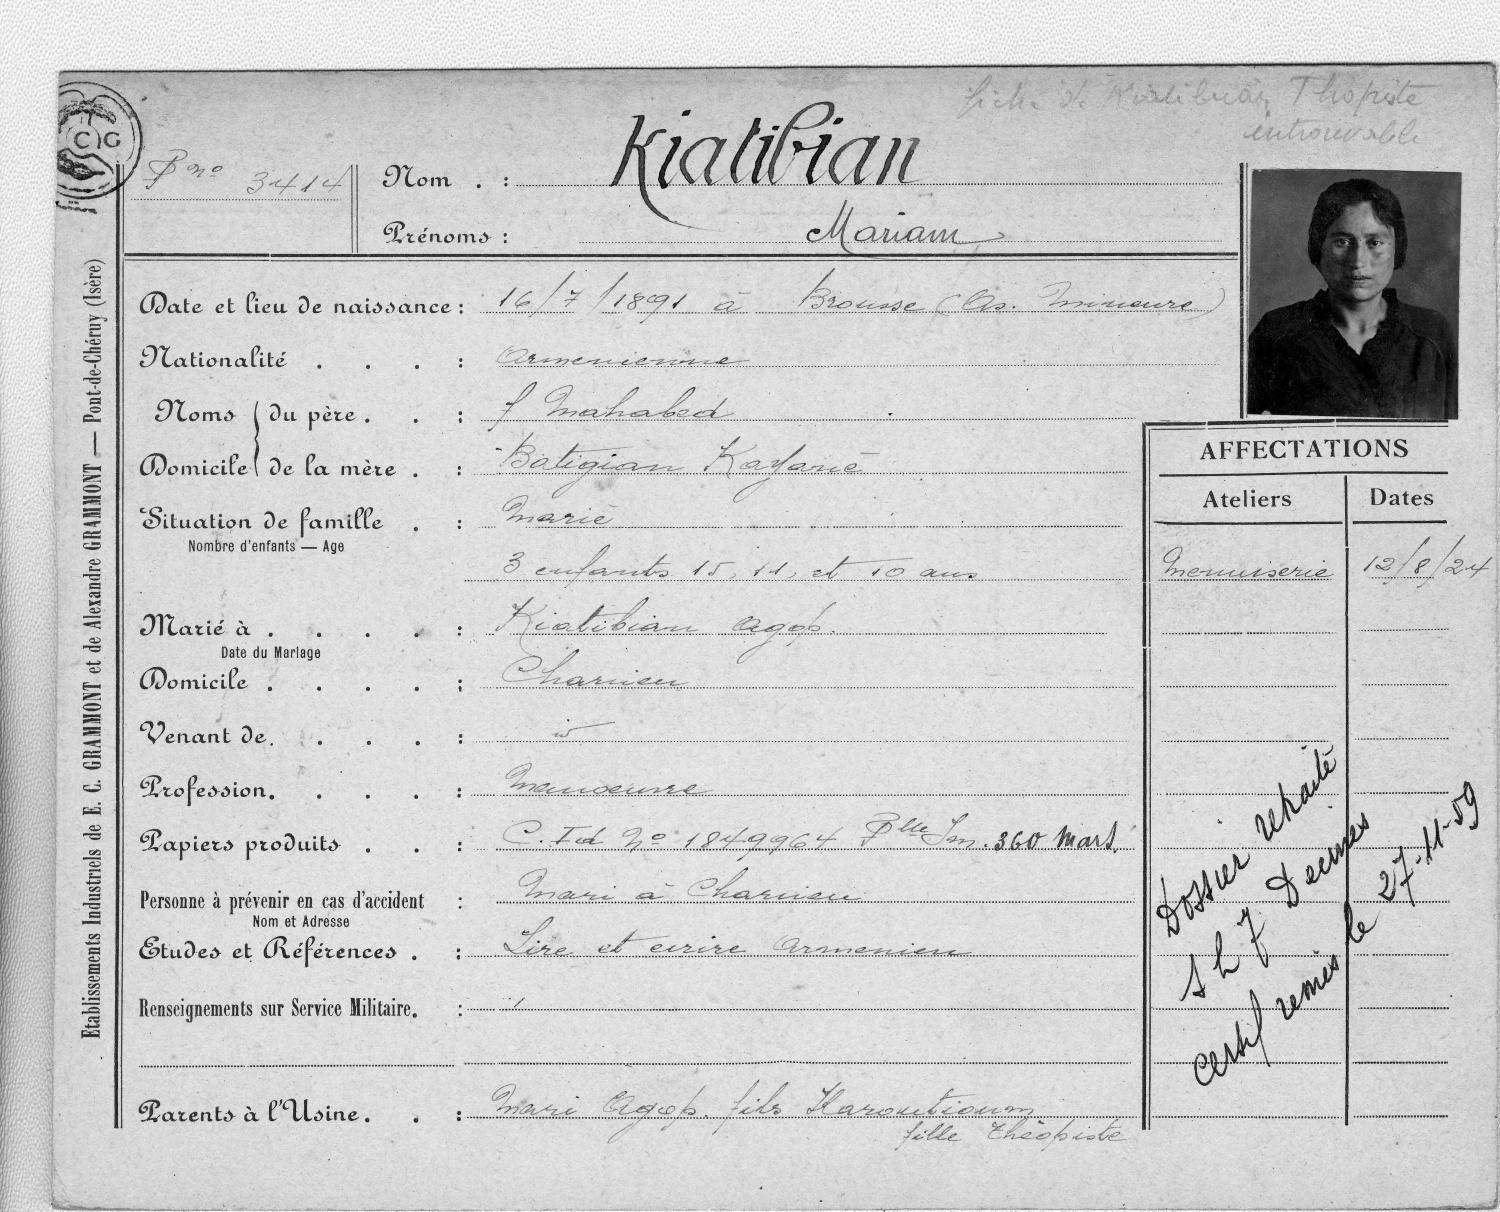 fiche de Kiatibian Thopiste
introuvable
C G
P nº 3414
Nom . : Kiatibian
Prénoms : Mariam
Date et lieu de naissance : 16/7/1891 à Brousse (As. Mineure)
Nationalité . . . : Armenienne
Noms du père . . : f Mahabed
Domicile de la mère . : Batigian Kayanė
Situation de famille . : Marié
Nombre d'enfants — Age
3 enfants 15, 11, et 10 ans
Marié à . . . . : Kiatibian Agop.
Date du Mariage
Domicile . . . . : Charvieu
Venant de. . . . :
Profession. . . . : Manoeuvre
Papiers produits . . : C. Id Nº 1849964 Blle Im. 360 Mars.
Personne à prévenir en cas d'accident : Mari à Charvieu
Nom et Adresse
Etudes et Références . : Lire et ecrire Armenien
Renseignements sur Service Militaire. :
Parents à l'Usine. . : Mari Agop. fils Haroutioum
fille Théopiste
AFFECTATIONS
Ateliers Dates
Menuiserie 12/8/24
Dossier retraité
s h 7 Decines
certif remis le 27-11-59
Etablissements Industriels de E. C. GRAMMONT et de Alexandre GRAMMONT — Pont-de-Chéruy (Isère)